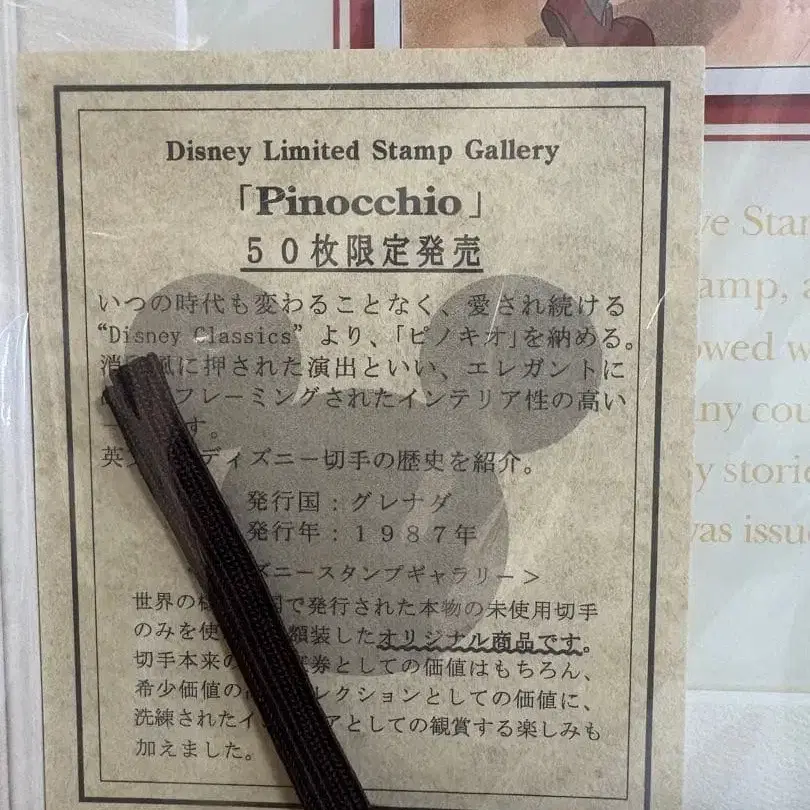 Disney Limited Stamp Gallery
「Pinocchio」
50枚限定発売
いつの時代も変わることなく、愛され続ける
“Disney Classics” より、「ピノキオ」を納める。
消 に押された演出といい、エレガントに
フレーミングされたインテリア性の高い
す。
英 ディズニー切手の歴史を紹介。
発行国:グレナダ
発行年:1987年
ズニースタンプギャラリー>
世界の 国で発行された本物の未使用切手
のみを使 額装したオリジナル商品です。
切手本来の 券としての価値はもちろん、
希少価値の レクションとしての価値に、
洗練されたイ アとしての観賞する楽しみも
加えました。
ve Stan
amp, a
owed w
any cou
y storie
was issue